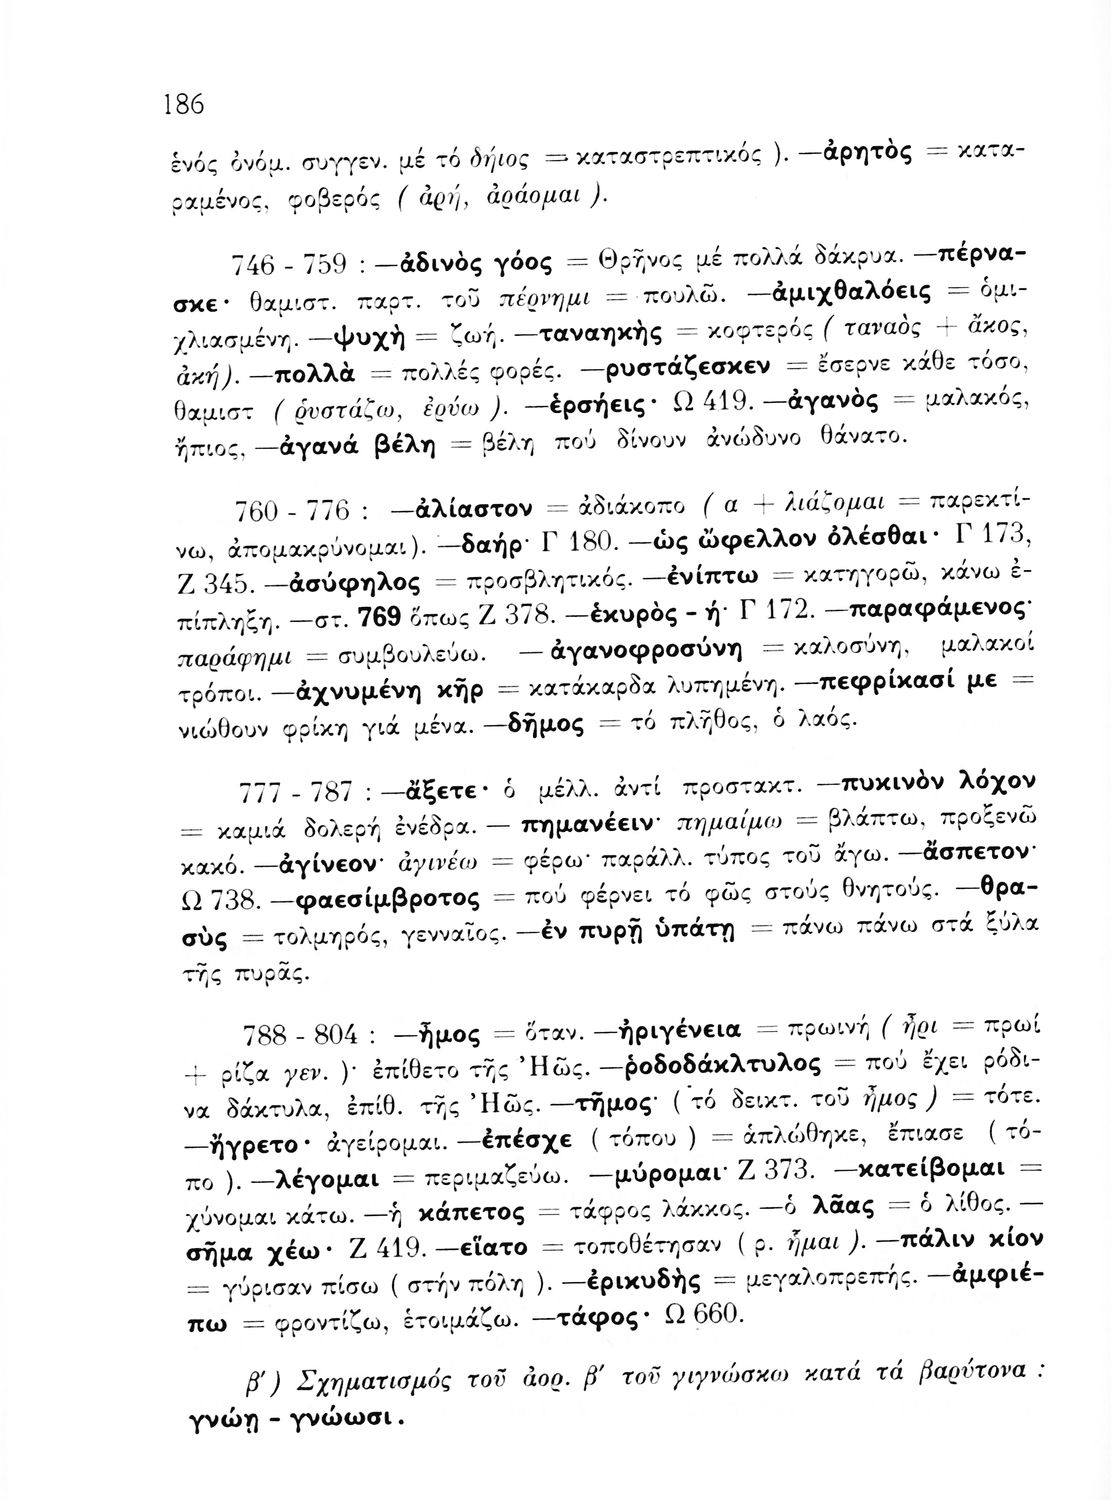 186
ἑνός ὀνόμ. συγγεν. μέ τό δήιος = καταστρεπτικός ). —ἀρητὸς = κατα-
ραμένος, φοβερός ( ἀρή, ἀράομαι ).
746 - 759 : —ἀδινὸς γόος = Θρῆνος μέ πολλά δάκρυα. —πέρνα-
σκε· θαμιστ. παρτ. τοῦ πέρνημι = πουλῶ. —ἀμιχθαλόεις = ὁμι-
χλιασμένη. —ψυχὴ = ζωή. —ταναηκὴς = κοφτερός ( ταναὸς + ἄκος,
ἀκή). —πολλὰ = πολλές φορές. —ρυστάζεσκεν = ἔσερνε κάθε τόσο,
θαμιστ ( ῥυστάζω, ἐρύω ). —ἑρσήεις· Ω 419. —ἀγανὸς = μαλακός,
ἤπιος, —ἀγανά βέλη = βέλη πού δίνουν ἀνώδυνο θάνατο.
760 - 776 : —ἀλίαστον = ἀδιάκοπο ( α + λιάζομαι = παρεκτί-
νω, ἀπομακρύνομαι). —δαήρ· Γ 180. —ὡς ὤφελλον ὀλέσθαι· Γ 173,
Ζ 345. —ἀσύφηλος = προσβλητικός. —ἐνίπτω = κατηγορῶ, κάνω ἐ-
πίπληξη. —στ. 769 ὅπως Ζ 378. —ἑκυρὸς - ή· Γ 172. —παραφάμενος·
παράφημι = συμβουλεύω. —ἀγανοφροσύνη = καλοσύνη, μαλακοί
τρόποι. —ἀχνυμένη κῆρ = κατάκαρδα λυπημένη. —πεφρίκασί με =
νιώθουν φρίκη γιά μένα. —δῆμος = τό πλῆθος, ὁ λαός.
777 - 787 : —ἄξετε· ὁ μέλλ. ἀντί προστακτ. —πυκινὸν λόχον
= καμιά δολερή ἐνέδρα. — πημανέειν· πημαίμω = βλάπτω, προξενῶ
κακό. —ἀγίνεον· ἀγινέω = φέρω· παράλλ. τύπος τοῦ ἄγω. —ἄσπετον·
Ω 738. —φαεσίμβροτος = πού φέρνει τό φῶς στούς θνητούς. —θρα-
σὺς = τολμηρός, γενναῖος. —ἐν πυρῇ ὑπάτῃ = πάνω πάνω στά ξύλα
τῆς πυρᾶς.
788 - 804 : —ἦμος = ὅταν. —ἠριγένεια = πρωινή ( ἦρι = πρωί
+ ρίζα γεν. )· ἐπίθετο τῆς Ἠῶς. —ῥοδοδάκλτυλος = πού ἔχει ρόδι-
να δάκτυλα, ἐπίθ. τῆς Ἠῶς. —τῆμος· ( τό δεικτ. τοῦ ἦμος ) = τότε.
—ἤγρετο· ἀγείρομαι. —ἐπέσχε ( τόπου ) = ἁπλώθηκε, ἔπιασε ( τό-
πο ). —λέγομαι = περιμαζεύω. —μύρομαι· Ζ 373. —κατείβομαι =
χύνομαι κάτω. —ἡ κάπετος = τάφρος λάκκος. —ὁ λᾶας = ὁ λίθος. —
σῆμα χέω· Ζ 419. —εἵατο = τοποθέτησαν ( ρ. ἧμαι ). —πάλιν κίον
= γύρισαν πίσω ( στήν πόλη ). —ἐρικυδὴς = μεγαλοπρεπής. —ἀμφιέ-
πω = φροντίζω, ἑτοιμάζω. —τάφος· Ω 660.
β΄) Σχηματισμός τοῦ ἀορ. β΄ τοῦ γιγνώσκω κατά τά βαρύτονα :
γνώῃ - γνώωσι.